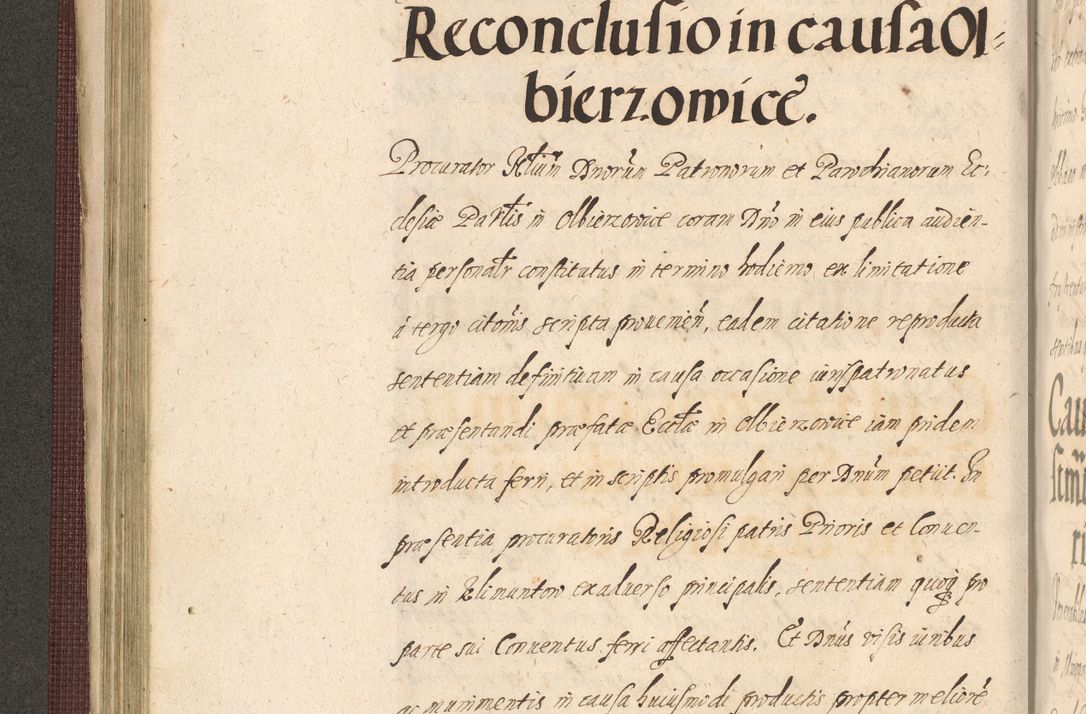 Reconclusio in causa Ol=
bierzowicẽ.
Procurator Rtium Dnorum Patronorum et Parochianorum Ec:
clesiæ Partis in Olbierzowice coram Dno in eius publica audien-
tia personalr constitutus in termino hodierno ex limitatione
a tergo citonis scripta provenien, eadem citatione reproducta
sententiam definitivam in causa occasione iurispatronatus
et præsentandi præfatæ Ecclæ in Olbierzowice iam pridem
introducta ferri, et in scriptis promulgari per Dnum petiit. In
præsentia procuratoris Religiosi patris Prioris et Conven-
tus in Klimuntow exadverso principalis, sententiam quoq pro
parte sui Conventus ferri affectantis. Et Dnus visis iuribus
ac munimentis in causa huiusmodi productis propter meliorē